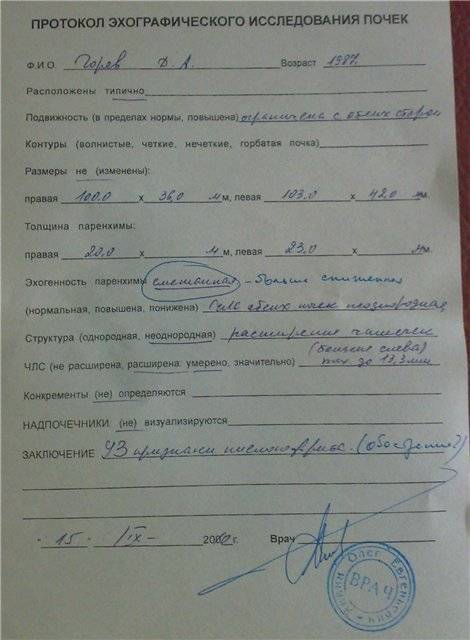 ПРОТОКОЛ ЭХОГРАФИЧЕСКОГО ИССЛЕДОВАНИЯ ПОЧЕК
Ф.И.О. Горев Д.А. Возраст 1987.
Расположены типично
Подвижность (в пределах нормы, повышена) ограничена с обеих сторон
Контуры (волнистые, четкие, нечеткие, горбатая почка)
Размеры не (изменены):
правая 100,0 х 36,0 мм, левая 103,0 х 42,0 мм
Толщина паренхимы:
правая 20,0 х м м, левая 23,0 х мм
Эхогенность паренхимы смешанная - больше сниженная
(нормальная, повышена, понижена) обеих почек неоднородная
Структура (однородная, неоднородная) расширение чашечек
(больше слева)
ЧЛС (не расширена, расширена: умерено, значительно) max до 13,3 мм
Конкременты (не) определяются
НАДПОЧЕЧНИКИ (не) визуализируются
ЗАКЛЮЧЕНИЕ УЗ признаки пиелонефрита. (обострение?)
15 IX 200 г. Врач
Олег Евгеньевич
ВРАЧ